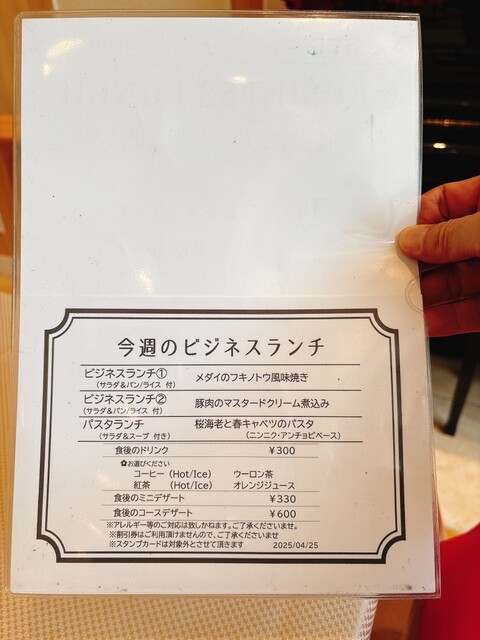 今週のビジネスランチ
ビジネスランチ① メダイのフキノトウ風味焼き
（サラダ＆パン/ライス 付）
ビジネスランチ② 豚肉のマスタードクリーム煮込み
（サラダ＆パン/ライス 付）
パスタランチ 桜海老と春キャベツのパスタ
（サラダ＆スープ 付き） （ニンニク・アンチョビベース）
食後のドリンク ¥300
✿お選びください
コーヒー（Hot/Ice） ウーロン茶
紅茶 （Hot/Ice） オレンジジュース
食後のミニデザート ¥330
食後のコースデザート ¥600
※アレルギー等のご対応は致しかねます。ご了承くださいませ。
※割引券はご利用頂けませんので、ご了承くださいませ
※スタンプカードは対象外とさせて頂きます 2025/04/25